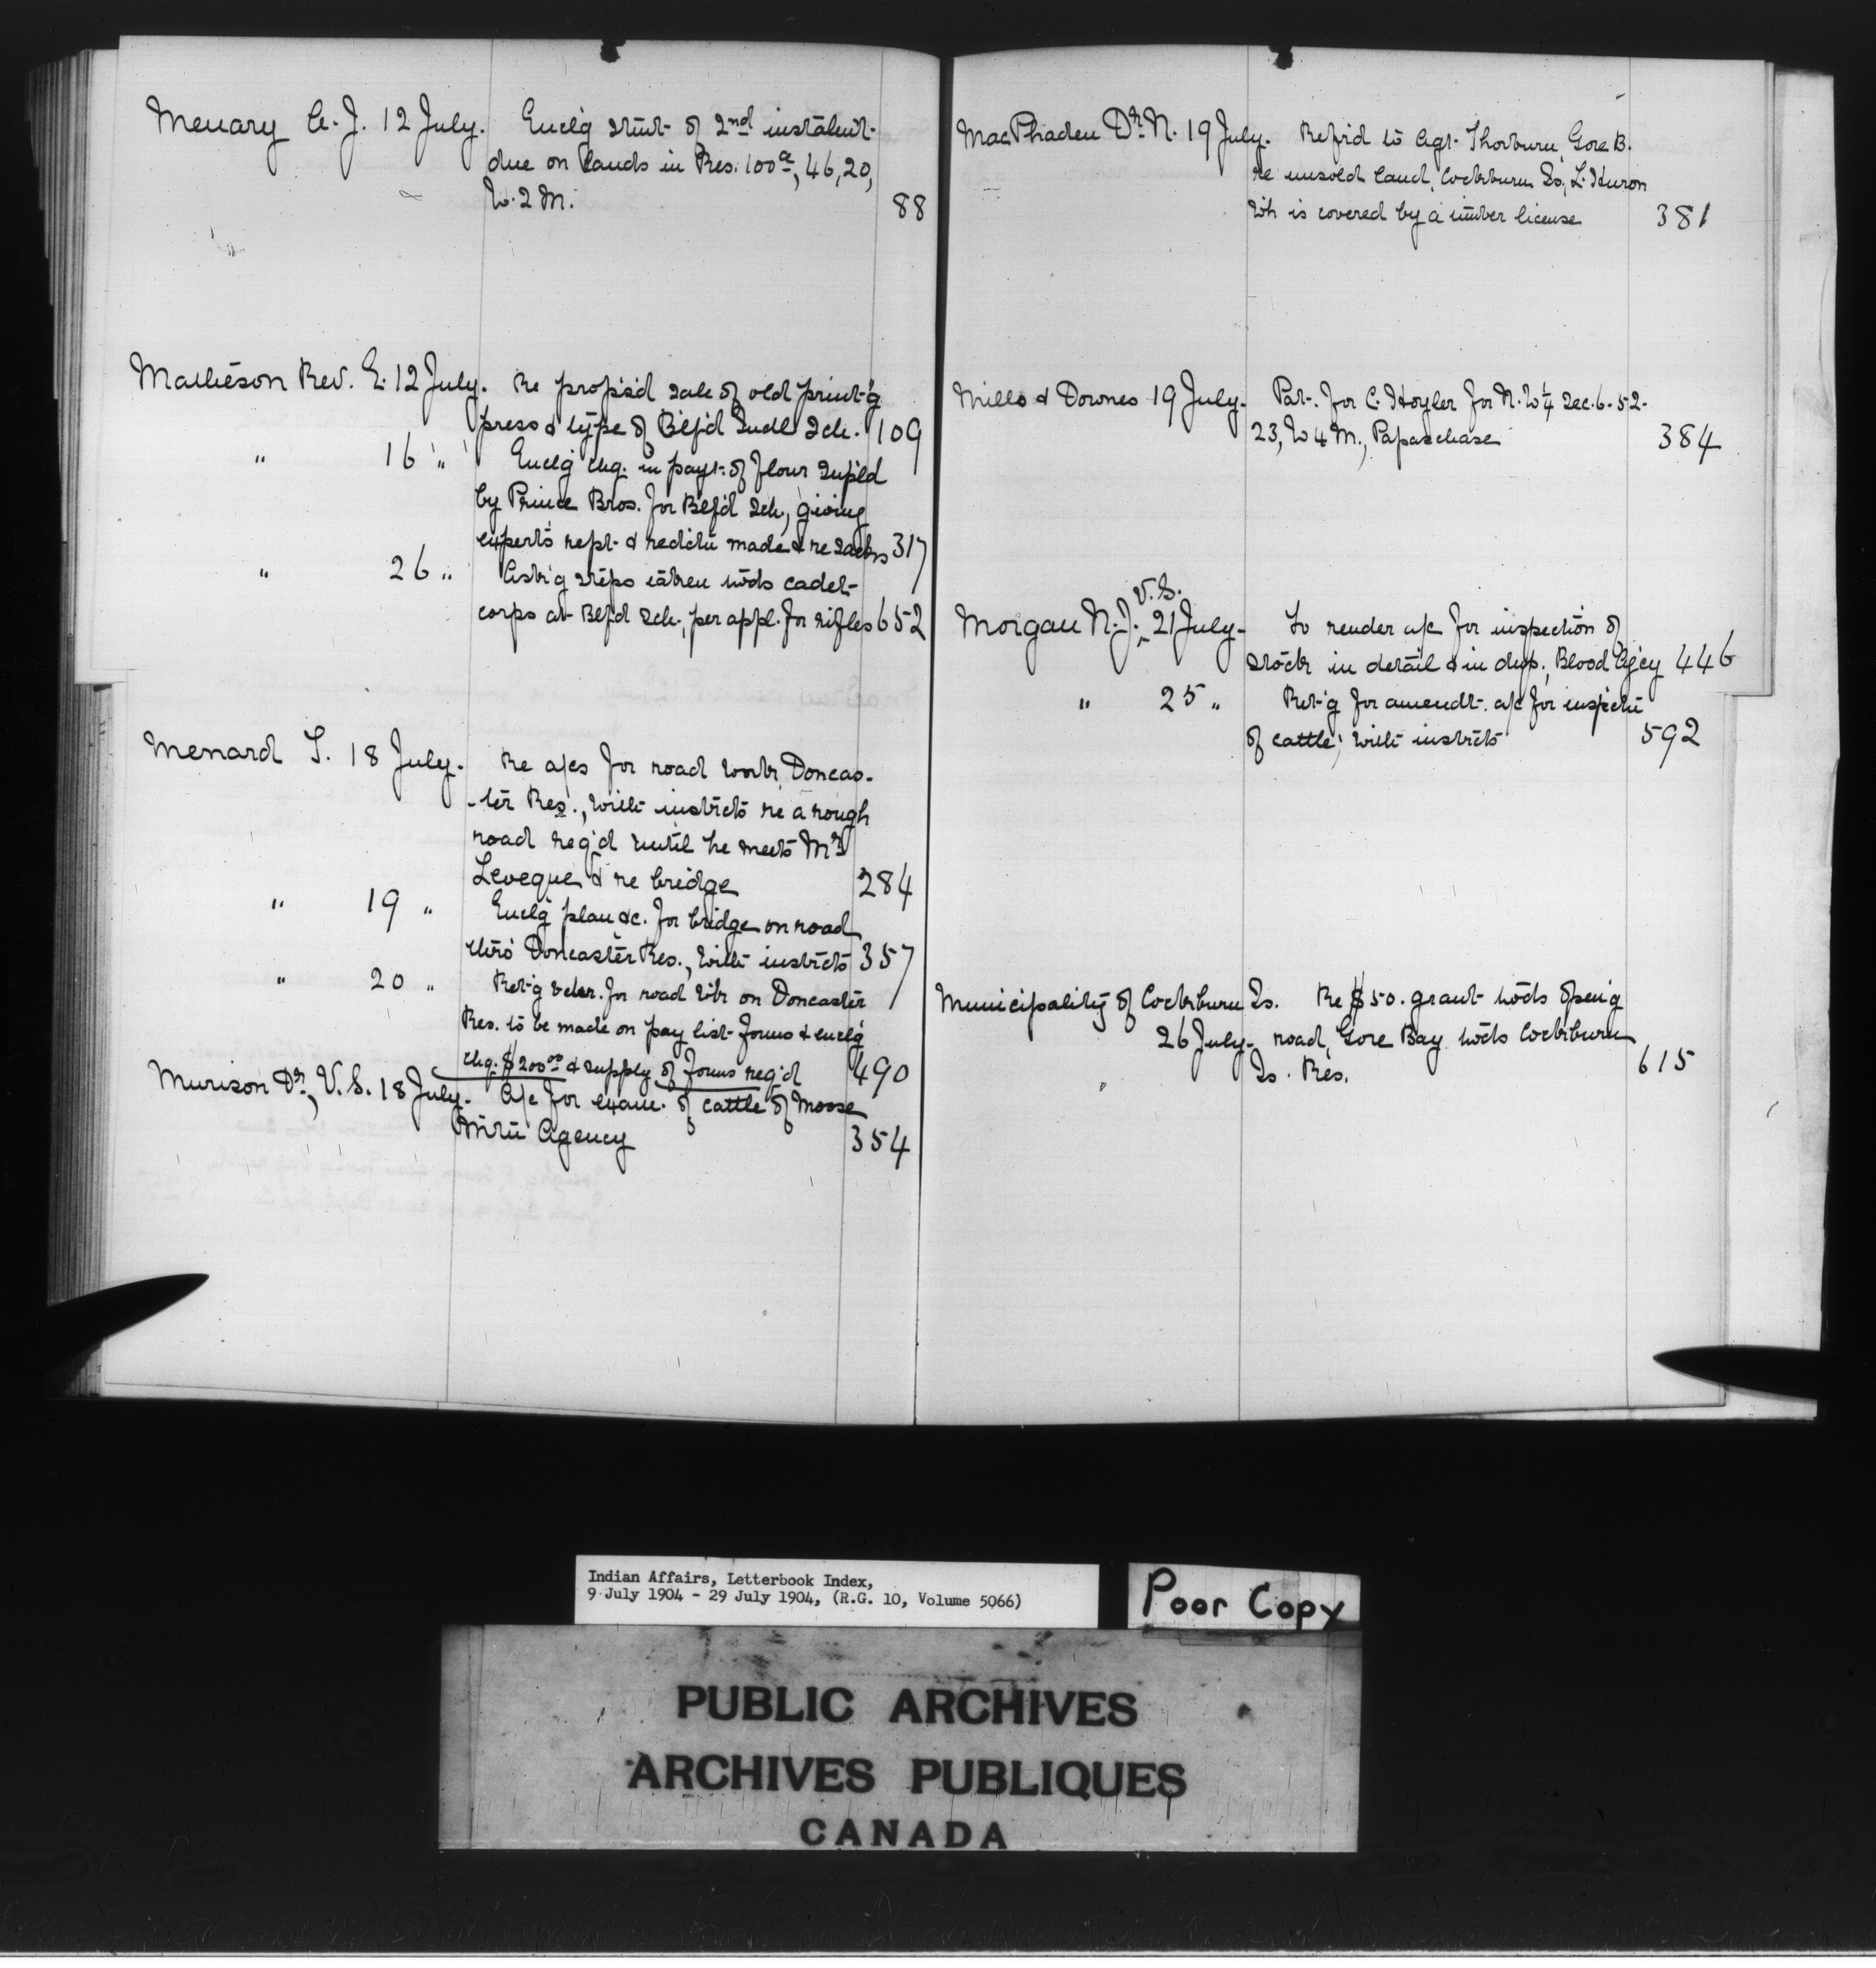 Menary A. J. 12 July. Encl'g stmt of 2nd instalmt
due on lands in Res. 100a, 46, 20,
W. 2 M. 88
Matheson Rev. E. 12 July. Re props'd sale of old print'g
press & type of Blf'd Indl Sch. 109
" 16 " Encl'g chq. in payt. of flour supl'd
by Prince Bros. for Blf'd Sch., giving
experts rept. & redctn made & re sacks 317
" 26 " Ask'g steps taken twds cadet
corps at Blf'd Sch., per appl. for rifles 652
Menard T. 18 July. Re a/cs for road work Doncas-
-ter Res., with instrcts re a rough
road req'd until he meets Mr
Leveque & re bridge 284
" 19 " Encl'g plan &c. for bridge on road
thro' Doncaster Res., with instrcts 357
" 20 " Ret'g vchr. for road wk on Doncaster
Res. to be made on pay list forms & encl'g
chq. $200.00 & supply of forms req'd 490
Murison Dr., V.S. 18 July. A/c for exam. of cattle of Moose
Mntn Agency 354
MacPhaden Dr. N. 19 July. Refr'd to Agt. Thorburn, Gore B.
re unsold land, Cockburn Is., L. Huron
wh is covered by a timber license 381
Mills & Downes 19 July. Pat. for C. Hoyler for N.W¼ Sec. 6-52-
23, W 4 M., Papaschase 384
V.S.
Morgan N. J. ^ 21 July. To render a/c for inspection of
stock in detail & in dup., Blood Ag'cy 446
" 25 " Ret'g for amendt. a/c for inspctn
of cattle; with instrcts 592
Municipality of Cockburn Is. Re $50. grant twds open'g
26 July. road, Gore Bay twds Cockburn
Is. Res. 615
Indian Affairs, Letterbook Index,
9 July 1904 - 29 July 1904, (R.G. 10, Volume 5066)
Poor Copy
PUBLIC ARCHIVES
ARCHIVES PUBLIQUES
CANADA